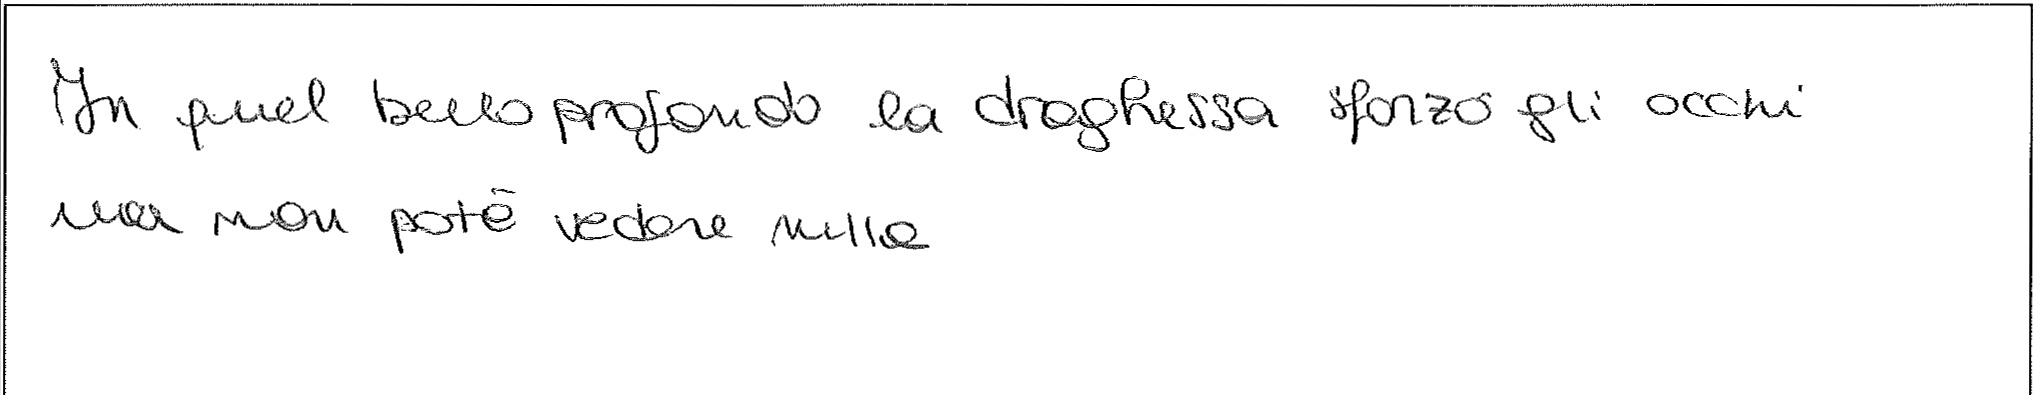 In quel bello profondo la draghessa sforzò gli occhi
ma non potè vedere nulla